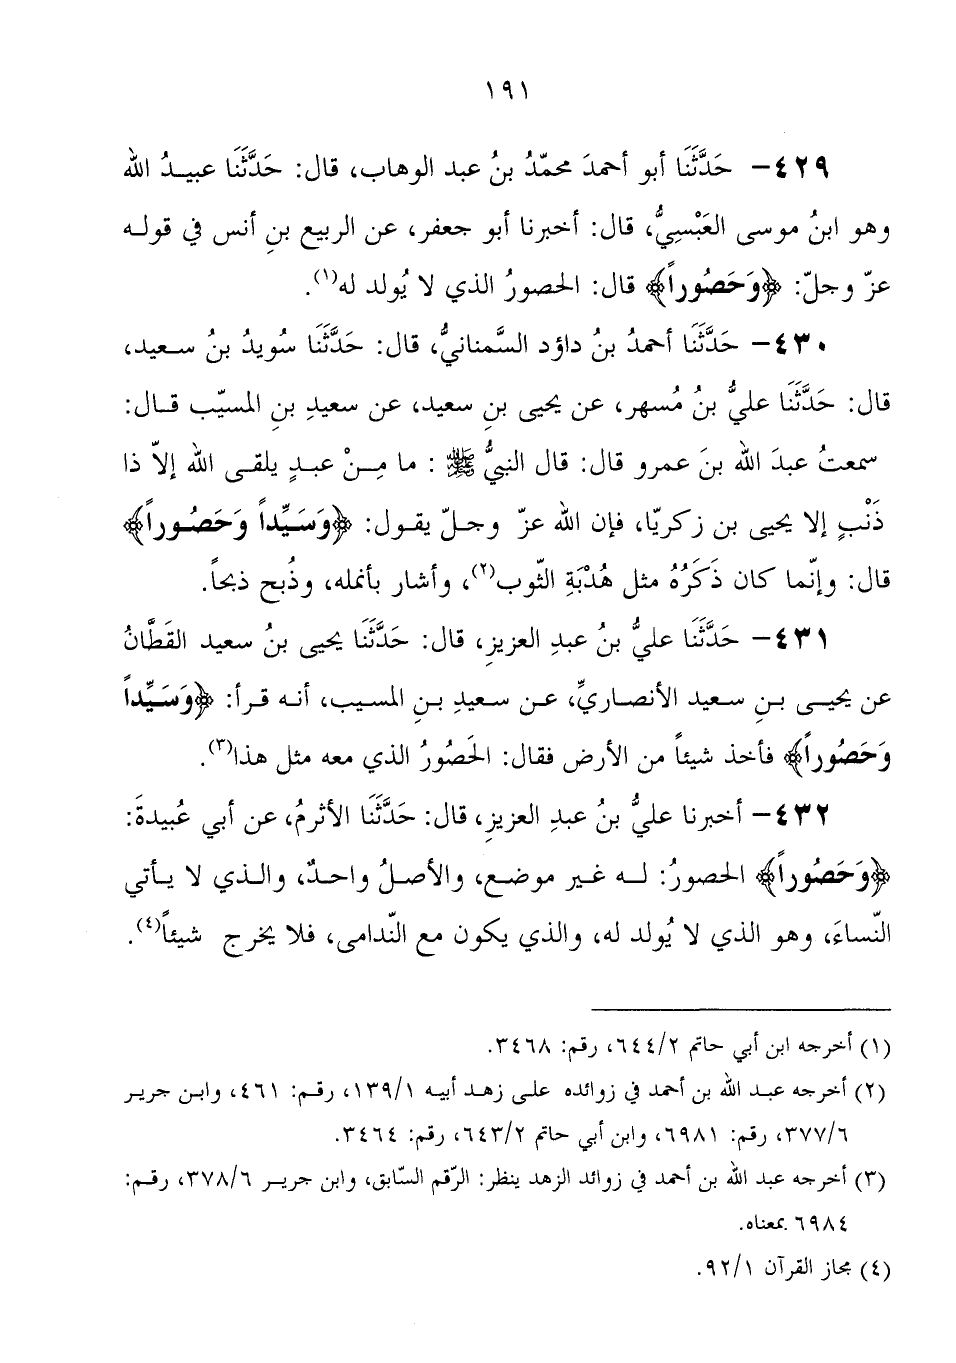 ١٩١
٤٢٩- حَدَّثَنَا أبو أحمدَ محمّدُ بنُ عبد الوهاب، قال: حَدَّثَنَا عبيـدُ الله
وهو ابنُ موسى العَبْسِيُّ، قال: أخبرنا أبو جعفر، عن الربيع بنِ أنس في قولـه
عزّ وجلّ: ﴿وَحَصُوراً﴾ قال: الحصورُ الذي لا يُولد له(١).
٤٣٠- حَدَّثَنَا أحمدُ بنُ داؤد السَّمنانيُّ، قال: حَدَّثَنَا سُويدُ بنُ سـعيد،
قال: حَدَّثَنَا عليُّ بنُ مُسهر، عن يحيى بنِ سعيد، عن سعيدِ بنِ المسيّب قـال:
سمعتُ عبدَ الله بنَ عمرو قال: قال النبيُّ ﷺ : ما مِـنْ عبـدٍ يلقـى الله إلاّ ذا
ذَنْبٍ إلا يحيى بن زكريّا، فإن الله عزّ وجلّ يقـول: ﴿وَسَـيِّداً وَحَصُـوراً﴾
قال: وإنّما كان ذَكَرُهُ مثل هُدْبَةِ الثّوب(٢)، وأشار بأنمله، وذُبح ذبحاً.
٤٣١- حَدَّثَنَا عليُّ بنُ عبدِ العزيزِ، قال: حَدَّثَنَا يحيى بنُ سعيد القَطَّانُ
عن يحيـى بـنِ سـعيد الأنصـاريِّ، عـن سعيدِ بـنِ المسـيب، أنـه قـرأ: ﴿وَسَـيِّداً
وَحَصُوراً﴾ فأخذ شيئاً من الأرض فقال: الحَصُورُ الذي معه مثل هذا(٣).
٤٣٢- أخبرنا عليُّ بنُ عبدِ العزيزِ، قال: حَدَّثَنَا الأثرمُ، عن أبي عُبيدةَ:
﴿وَحَصُوراً﴾ الحصورُ: لـه غـير موضـع، والأصـلُ واحـدٌ، والـذي لا يـأتي
النّساءَ، وهو الذي لا يُولد له، والذي يكون مع النّدامى، فلا يخرج شيئاً(٤).
(١) أخرجه ابن أبي حاتم ٦٤٤/٢، رقم: ٣٤٦٨.
(٢) أخرجه عبـد الله بن أحمد في زوائده علـى زهـد أبيـه ١٣٩/١، رقـم: ٤٦١، وابـن جريـر
٣٧٧/٦، رقم: ٦٩٨١، وابن أبي حاتم ٦٤٣/٢، رقم: ٣٤٦٤.
(٣) أخرجه عبد الله بن أحمد في زوائد الزهد ينظر: الرّقم السّابق، وابن جريـر ٣٧٨/٦، رقـم:
٦٩٨٤ بمعناه.
(٤) مجاز القرآن ٩٢/١.